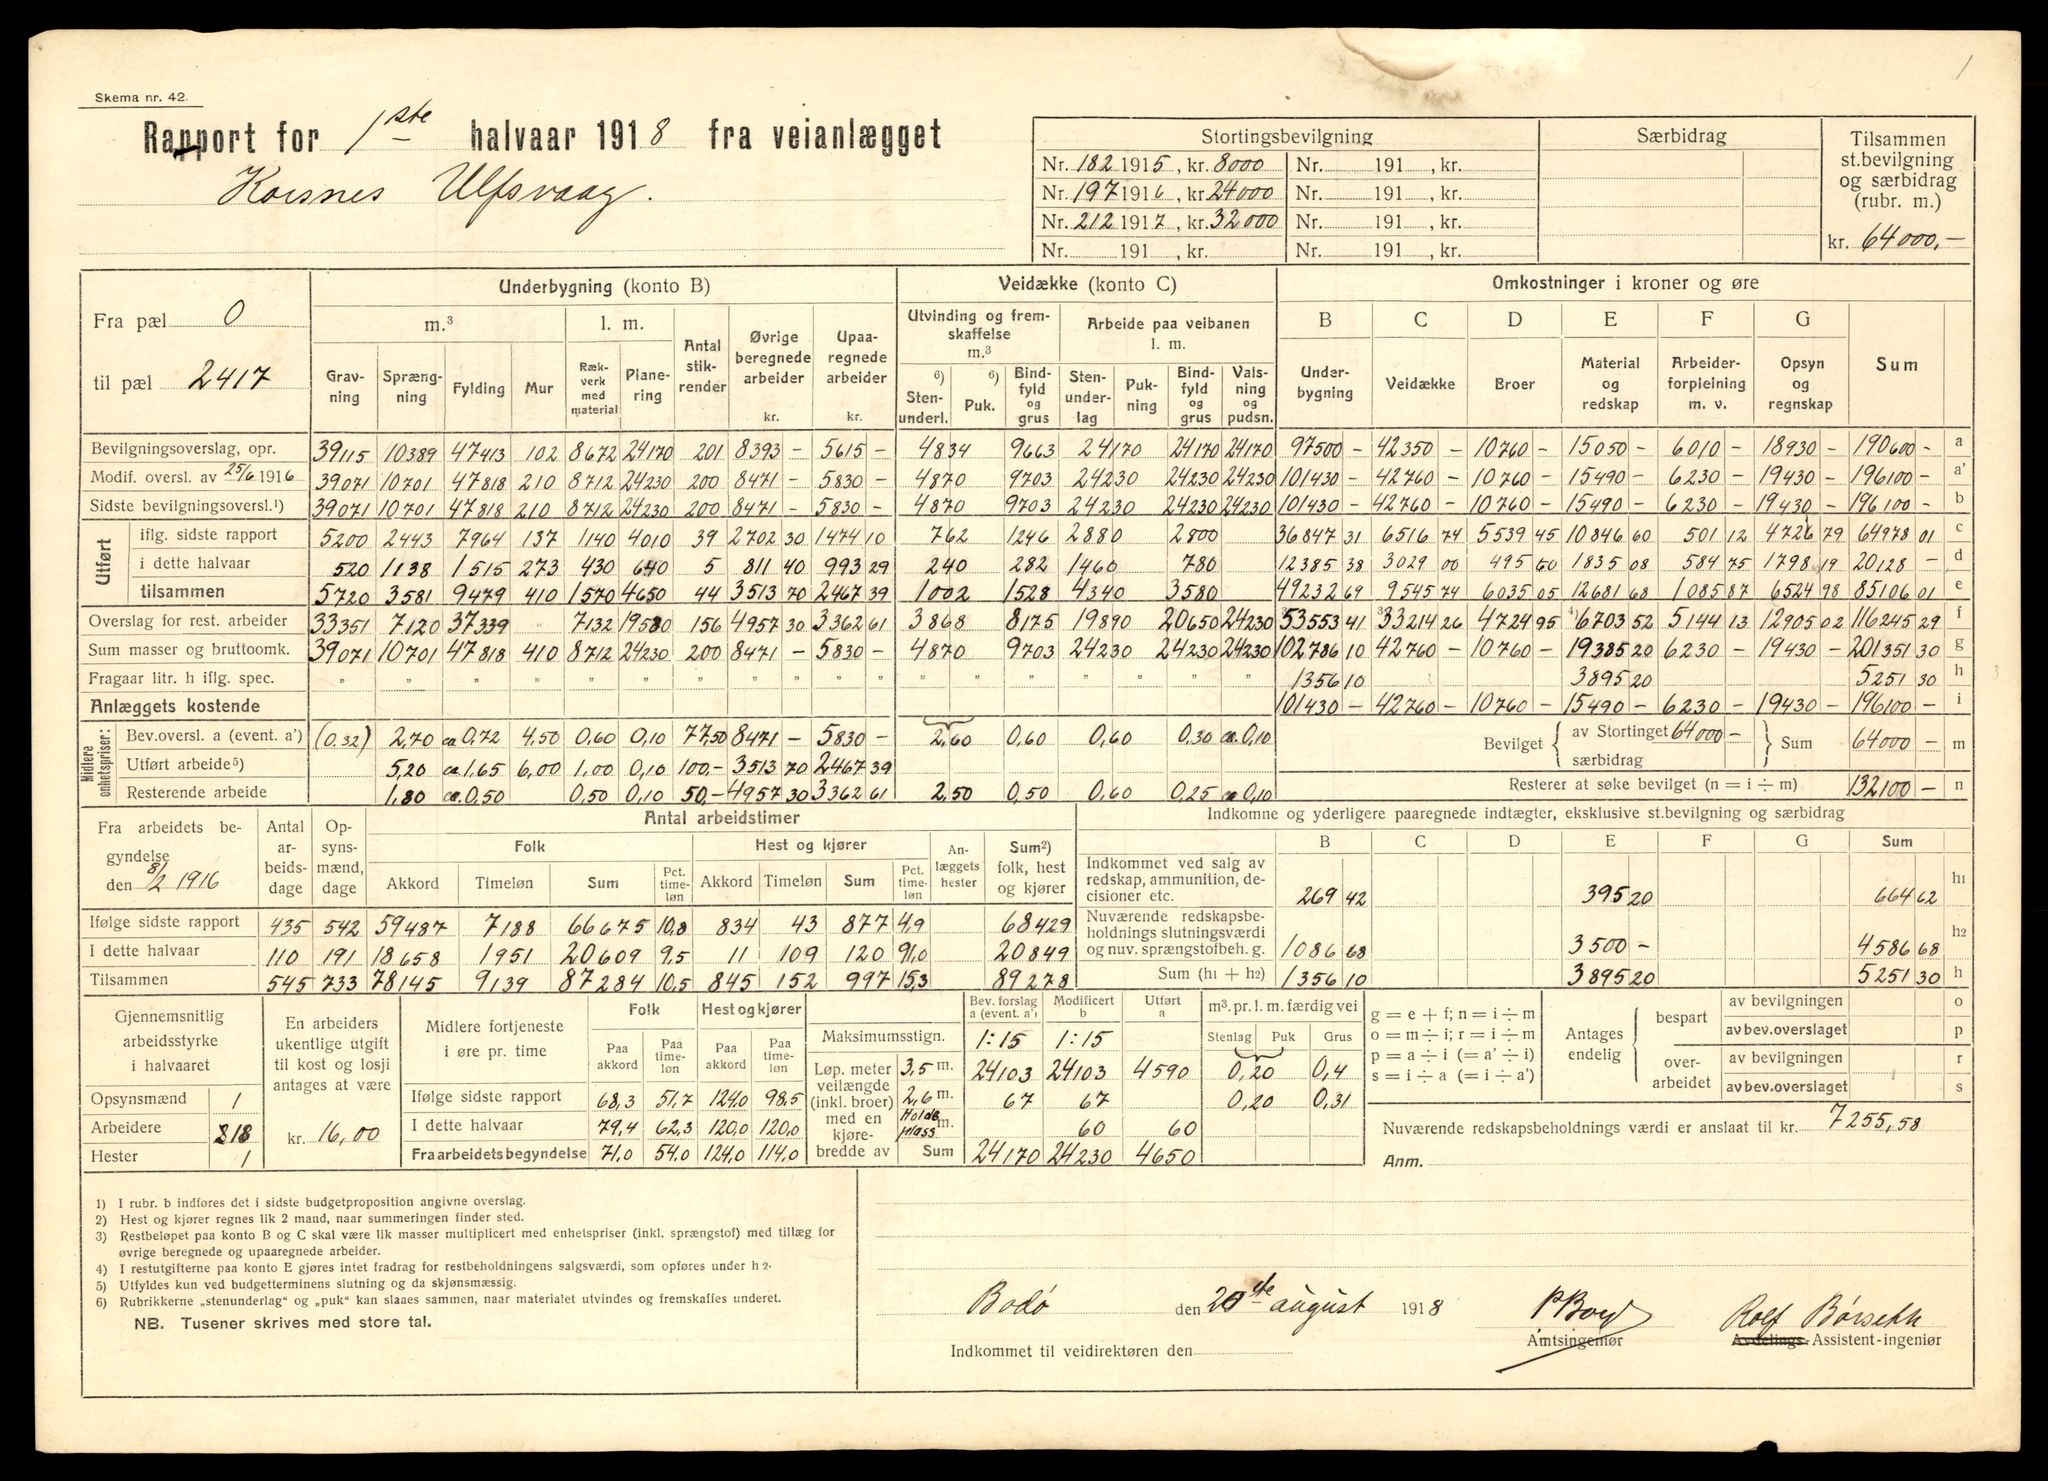 1
Skema nr. 42.
Rapport for 1ste halvaar 1918 fra veianlægget
Korsnes Ulfsvaag.
Stortingsbevilgning | Særbidrag | Tilsammen st.bevilgning og særbidrag (rubr. m.)
Nr. 182 1915, kr. 8000 | Nr. 191 , kr.
Nr. 197 1916, kr. 24000 | Nr. 191 , kr.
Nr. 212 1917, kr. 32000 | Nr. 191 , kr.
Nr. 191 , kr. | Nr. 191 , kr. | kr. 64000,-
Fra pæl 0
til pæl 2417
Underbygning (konto B) | Veidække (konto C) | Omkostninger i kroner og øre
m.³ | l. m. | Antal stikrender | Øvrige beregnede arbeider kr. | Upaaregnede arbeider kr. | Utvinding og fremskaffelse m.³ | Arbeide paa veibanen l. m. | B | C | D | E | F | G | Sum
Gravning | Sprængning | Fylding | Mur | Rækverk med material | Planering | 6) Stenunderl. | 6) Puk. | Bindfyld og grus | Stenunderlag | Pukning | Bindfyld og grus | Valsning og pudsn. | Underbygning | Veidække | Broer | Material og redskap | Arbeiderforpleining m. v. | Opsyn og regnskap
Bevilgningsoverslag, opr. 39115 10389 47413 102 8672 24170 201 8393 - 5615 - 4834 9663 24170 24170 24170 97500 - 42350 - 10760 - 15050 - 6010 - 18930 - 190600 - a
Modif. oversl. av 25/6 1916 39071 10701 47818 210 8712 24230 200 8471 - 5830 - 4870 9703 24230 24230 24230 101430 - 42760 - 10760 - 15490 - 6230 - 19430 - 196100 - a'
Sidste bevilgningsoversl.¹) 39071 10701 47818 210 8712 24230 200 8471 - 5830 - 4870 9703 24230 24230 24230 101430 - 42760 - 10760 - 15490 - 6230 - 19430 - 196100 - b
Utført
iflg. sidste rapport 5200 2443 7964 137 1140 4010 39 2702 30 1474 10 762 1246 2880 2800 36847 31 6516 74 5539 45 10846 60 501 12 4726 79 64978 01 c
i dette halvaar 520 1138 1515 273 430 640 5 811 40 993 29 240 282 1460 780 12385 38 3029 00 495 60 1835 08 584 75 1798 19 20128 - d
tilsammen 5720 3581 9479 410 1570 4650 44 3513 70 2467 39 1002 1528 4340 3580 49232 69 9545 74 6035 05 12681 68 1085 87 6524 98 85106 01 e
Overslag for rest. arbeider 33351 7120 37339 7132 19580 156 4957 30 3362 61 3868 8175 19890 20650 24230 ³53553 41 ³33214 26 4724 95 ⁴6703 52 5144 13 12905 02 116245 29 f
Sum masser og bruttoomk. 39071 10701 47818 410 8712 24230 200 8471 - 5830 - 4870 9703 24230 24230 24230 102786 10 42760 - 10760 - 19385 20 6230 - 19430 - 201351 30 g
Fragaar litr. h iflg. spec. " " " " " " " " " " " " " " 1356 10 3895 20 5251 30 h
Anlæggets kostende 101430 - 42760 - 10760 - 15490 - 6230 - 19430 - 196100 - i
Midlere enhetspriser:
Bev.oversl. a (event. a') (0.32) 2,70 ca 0,72 4,50 0,60 0,10 77,50 8471 - 5830 - 2,60 0,60 0,60 0,30 ca 0,10
Utført arbeide⁵) 5,20 ca 1,65 6,00 1,00 0,10 100,- 3513 70 2467 39
Resterende arbeide 1,80 ca. 0,50 0,50 0,10 50,- 4957 30 3362 61 2,50 0,50 0,60 0,25 ca 0,10
Bevilget { av Stortinget 64000 - særbidrag } Sum 64000 - m
Resterer at søke bevilget (n = i ÷ m) 132100 - n
Fra arbeidets begyndelse den 8/2 1916 | Antal arbeidsdage | Opsynsmænd, dage | Antal arbeidstimer
Folk | Hest og kjører | Anlæggets hester | Sum²) folk, hest og kjører
Akkord | Timeløn | Sum | Pct. timeløn | Akkord | Timeløn | Sum | Pct. timeløn
Ifølge sidste rapport 435 542 59487 7188 66675 10,8 834 43 877 4,9 68429
I dette halvaar 110 191 18658 1951 20609 9,5 11 109 120 91,0 20849
Tilsammen 545 733 78145 9139 87284 10,5 845 152 997 15,3 89278
Indkomne og yderligere paaregnede indtægter, eksklusive st.bevilgning og særbidrag
B | C | D | E | F | G | Sum
Indkommet ved salg av redskap, ammunition, decisioner etc. 269 42 395 20 664 62 h₁
Nuværende redskapsbeholdnings slutningsværdi og nuv. sprængstofbeh. g. 1086 68 3500 - 4586 68 h₂
Sum (h₁ + h₂) 1356 10 3895 20 5251 30 h
Gjennemsnitlig arbeidsstyrke i halvaaret
Opsynsmænd 1
Arbeidere 18
Hester 1
En arbeiders ukentlige utgift til kost og losji antages at være
kr. 16,00
Midlere fortjeneste i øre pr. time | Folk | Hest og kjører
Paa akkord | Paa timeløn | Paa akkord | Paa timeløn
Ifølge sidste rapport 68,3 51,7 124,0 98,5
I dette halvaar 79,4 62,3 120,0 120,0
Fra arbeidets begyndelse 71,0 54,0 124,0 114,0
Bev. forslag a (event. a') | Modificert b | Utført a
Maksimumsstign. 1:15 1:15
Løp. meter veilængde (inkl. broer) med en kjørebredde av
3,5 m. 24103 24103 4590
2,6 m. 67 67
Holdeplass m. 60 60
Sum 24170 24230 4650
m³. pr. l. m. færdig vei
Stenlag | Puk | Grus
0,20 0,4
0,20 0,31
g = e + f; n = i ÷ m
o = m ÷ i; r = i ÷ m
p = a ÷ i (= a' ÷ i)
s = i ÷ a (= i ÷ a')
Antages endelig
bespart { av bevilgningen o
av bev.overslaget p
overarbeidet { av bevilgningen r
av bev.overslaget s
Nuværende redskapsbeholdnings værdi er anslaat til kr. 7255,58
Anm.
1) I rubr. b indføres det i sidste budgetproposition angivne overslag.
2) Hest og kjører regnes lik 2 mand, naar summeringen finder sted.
3) Restbeløpet paa konto B og C skal være lik masser multiplicert med enhetspriser (inkl. sprængstof) med tillæg for
øvrige beregnede og upaaregnede arbeider.
4) I restutgifterne paa konto E gjøres intet fradrag for restbeholdningens salgsværdi, som opføres under h 2.
5) Utfyldes kun ved budgetterminens slutning og da skjønsmæssig.
6) Rubrikkerne „stenunderlag" og „puk" kan slaaes sammen, naar materialet utvindes og fremskaffes underet.
NB. Tusener skrives med store tal.
Bodø den 20de august 1918
Rolf Børseth
Amtsingeniør
Avdelings- Assistent-ingeniør
Indkommet til veidirektøren den